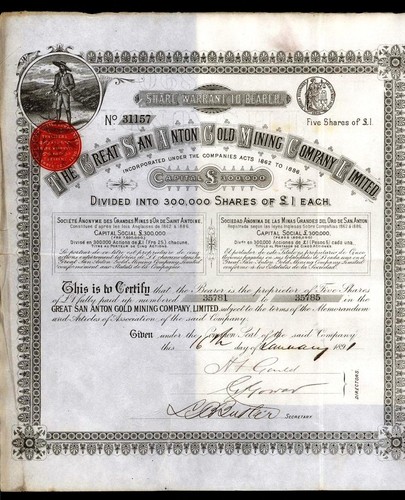 SHARE WARRANT TO BEARER.
Nº 31157
Five Shares of £1.
THE GREAT SAN ANTON GOLD MINING COMPANY, LIMITED
INCORPORATED UNDER THE COMPANIES ACTS 1862 TO 1886
CAPITAL £300,000
DIVIDED INTO 300,000 SHARES OF £1 EACH.
SOCIÉTÉ ANONYME DES GRANDES MINES D'OR DE SAINT ANTOINE
Constituée d'après les lois Anglaises de 1862 à 1886.
CAPITAL SOCIAL £300,000
Divisé en 300,000 Actions de £1 (Frs 25) chacune.
SOCIEDAD ANONIMA DE LAS MINAS GRANDES DEL ORO DE SAN ANTON
Registrada segun las leyes Inglesas Sobre Compañias 1862 à 1886.
CAPITAL SOCIAL £300,000
Divº en 300,000 Acciones de £1 (Pesos 5) cada una.
This is to Certify that the Bearer is the proprietor of Five Shares
of £1 fully paid up numbered 35781 to 35785 in the
GREAT SAN ANTON GOLD MINING COMPANY, LIMITED, subject to the terms of the Memorandum
and Articles of Association of the said Company.
Given under the Common Seal of the said Company
this day of January 1891
DIRECTORS.
SECRETARY